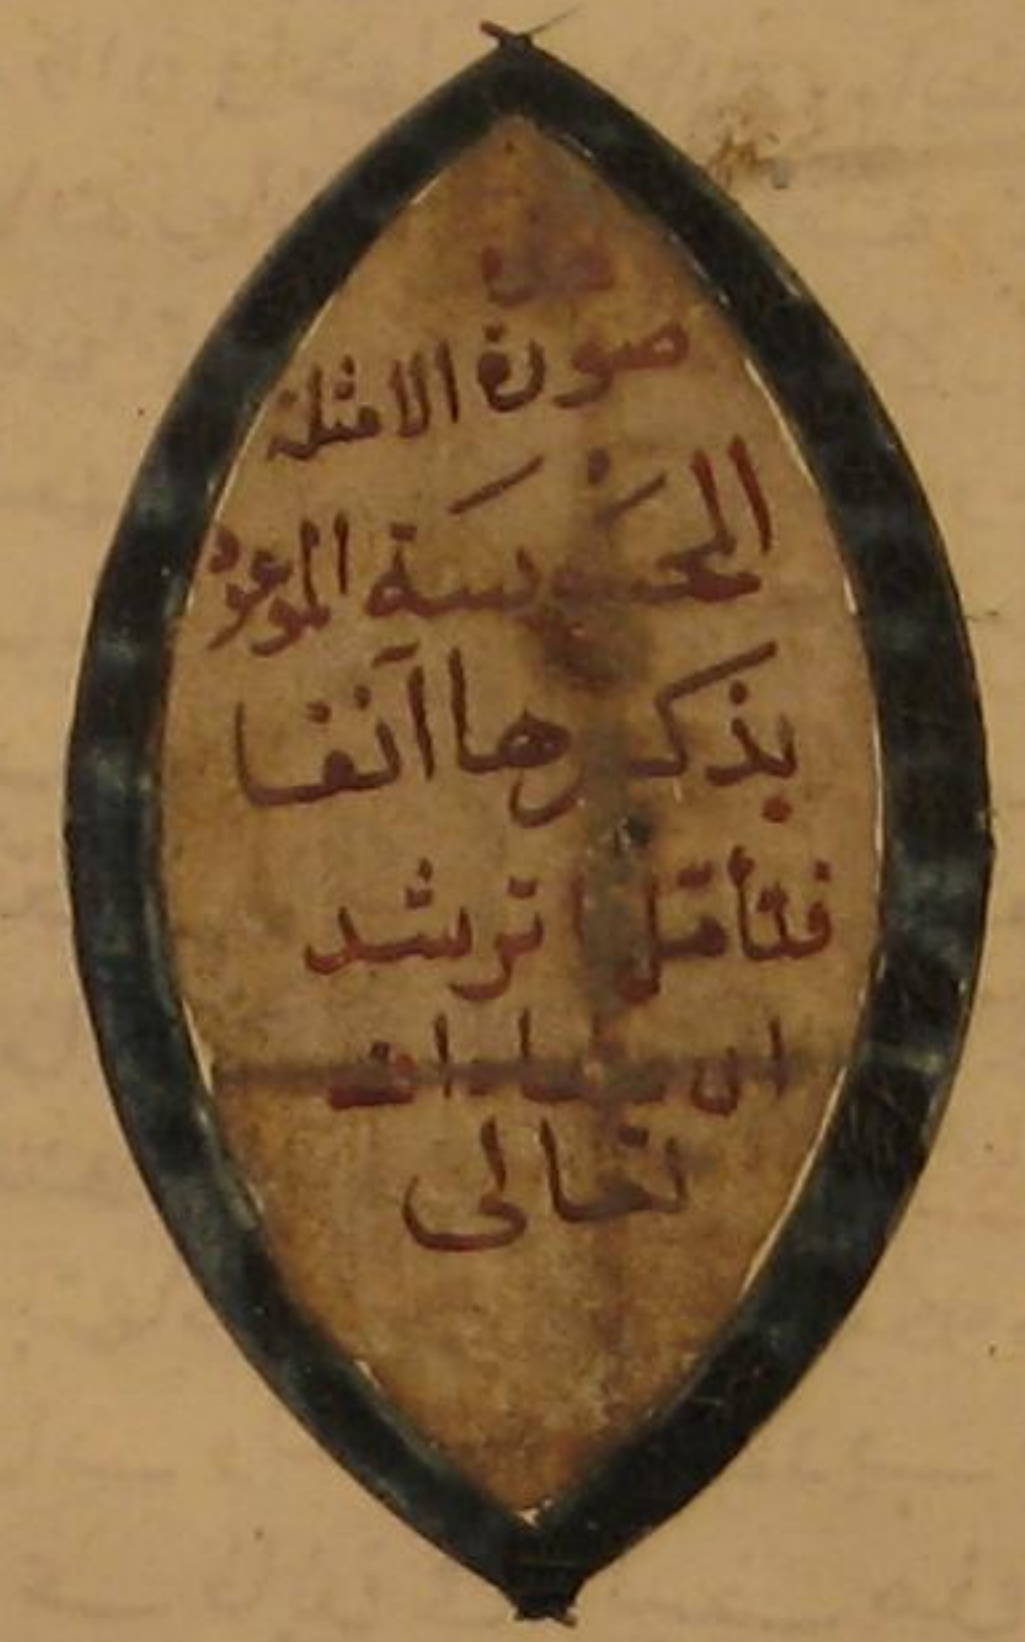 هذه
صورة الامثلة
المحسوسة الموعود
بذكرها آنفا
فتأمّلها ترشد
ان شاء الله
تعالى